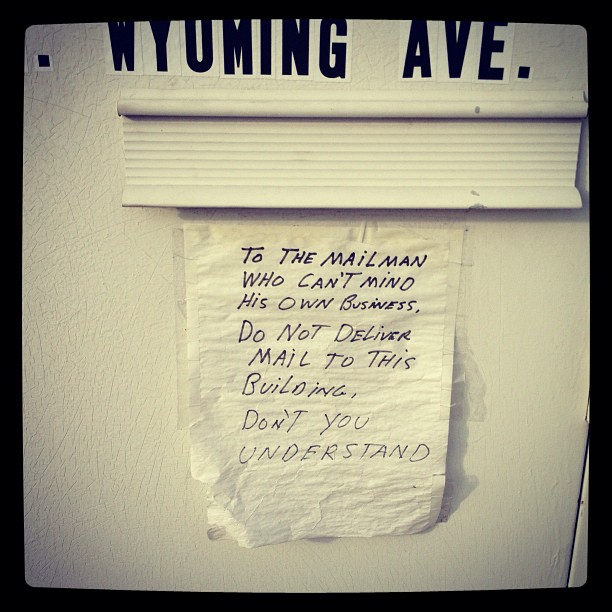 . WYOMING AVE.
TO THE MAILMAN
WHO CAN'T MIND
HIS OWN BUSINESS.
DO NOT DELIVER
MAIL TO THIS
BUILDING.
DON'T YOU
UNDERSTAND